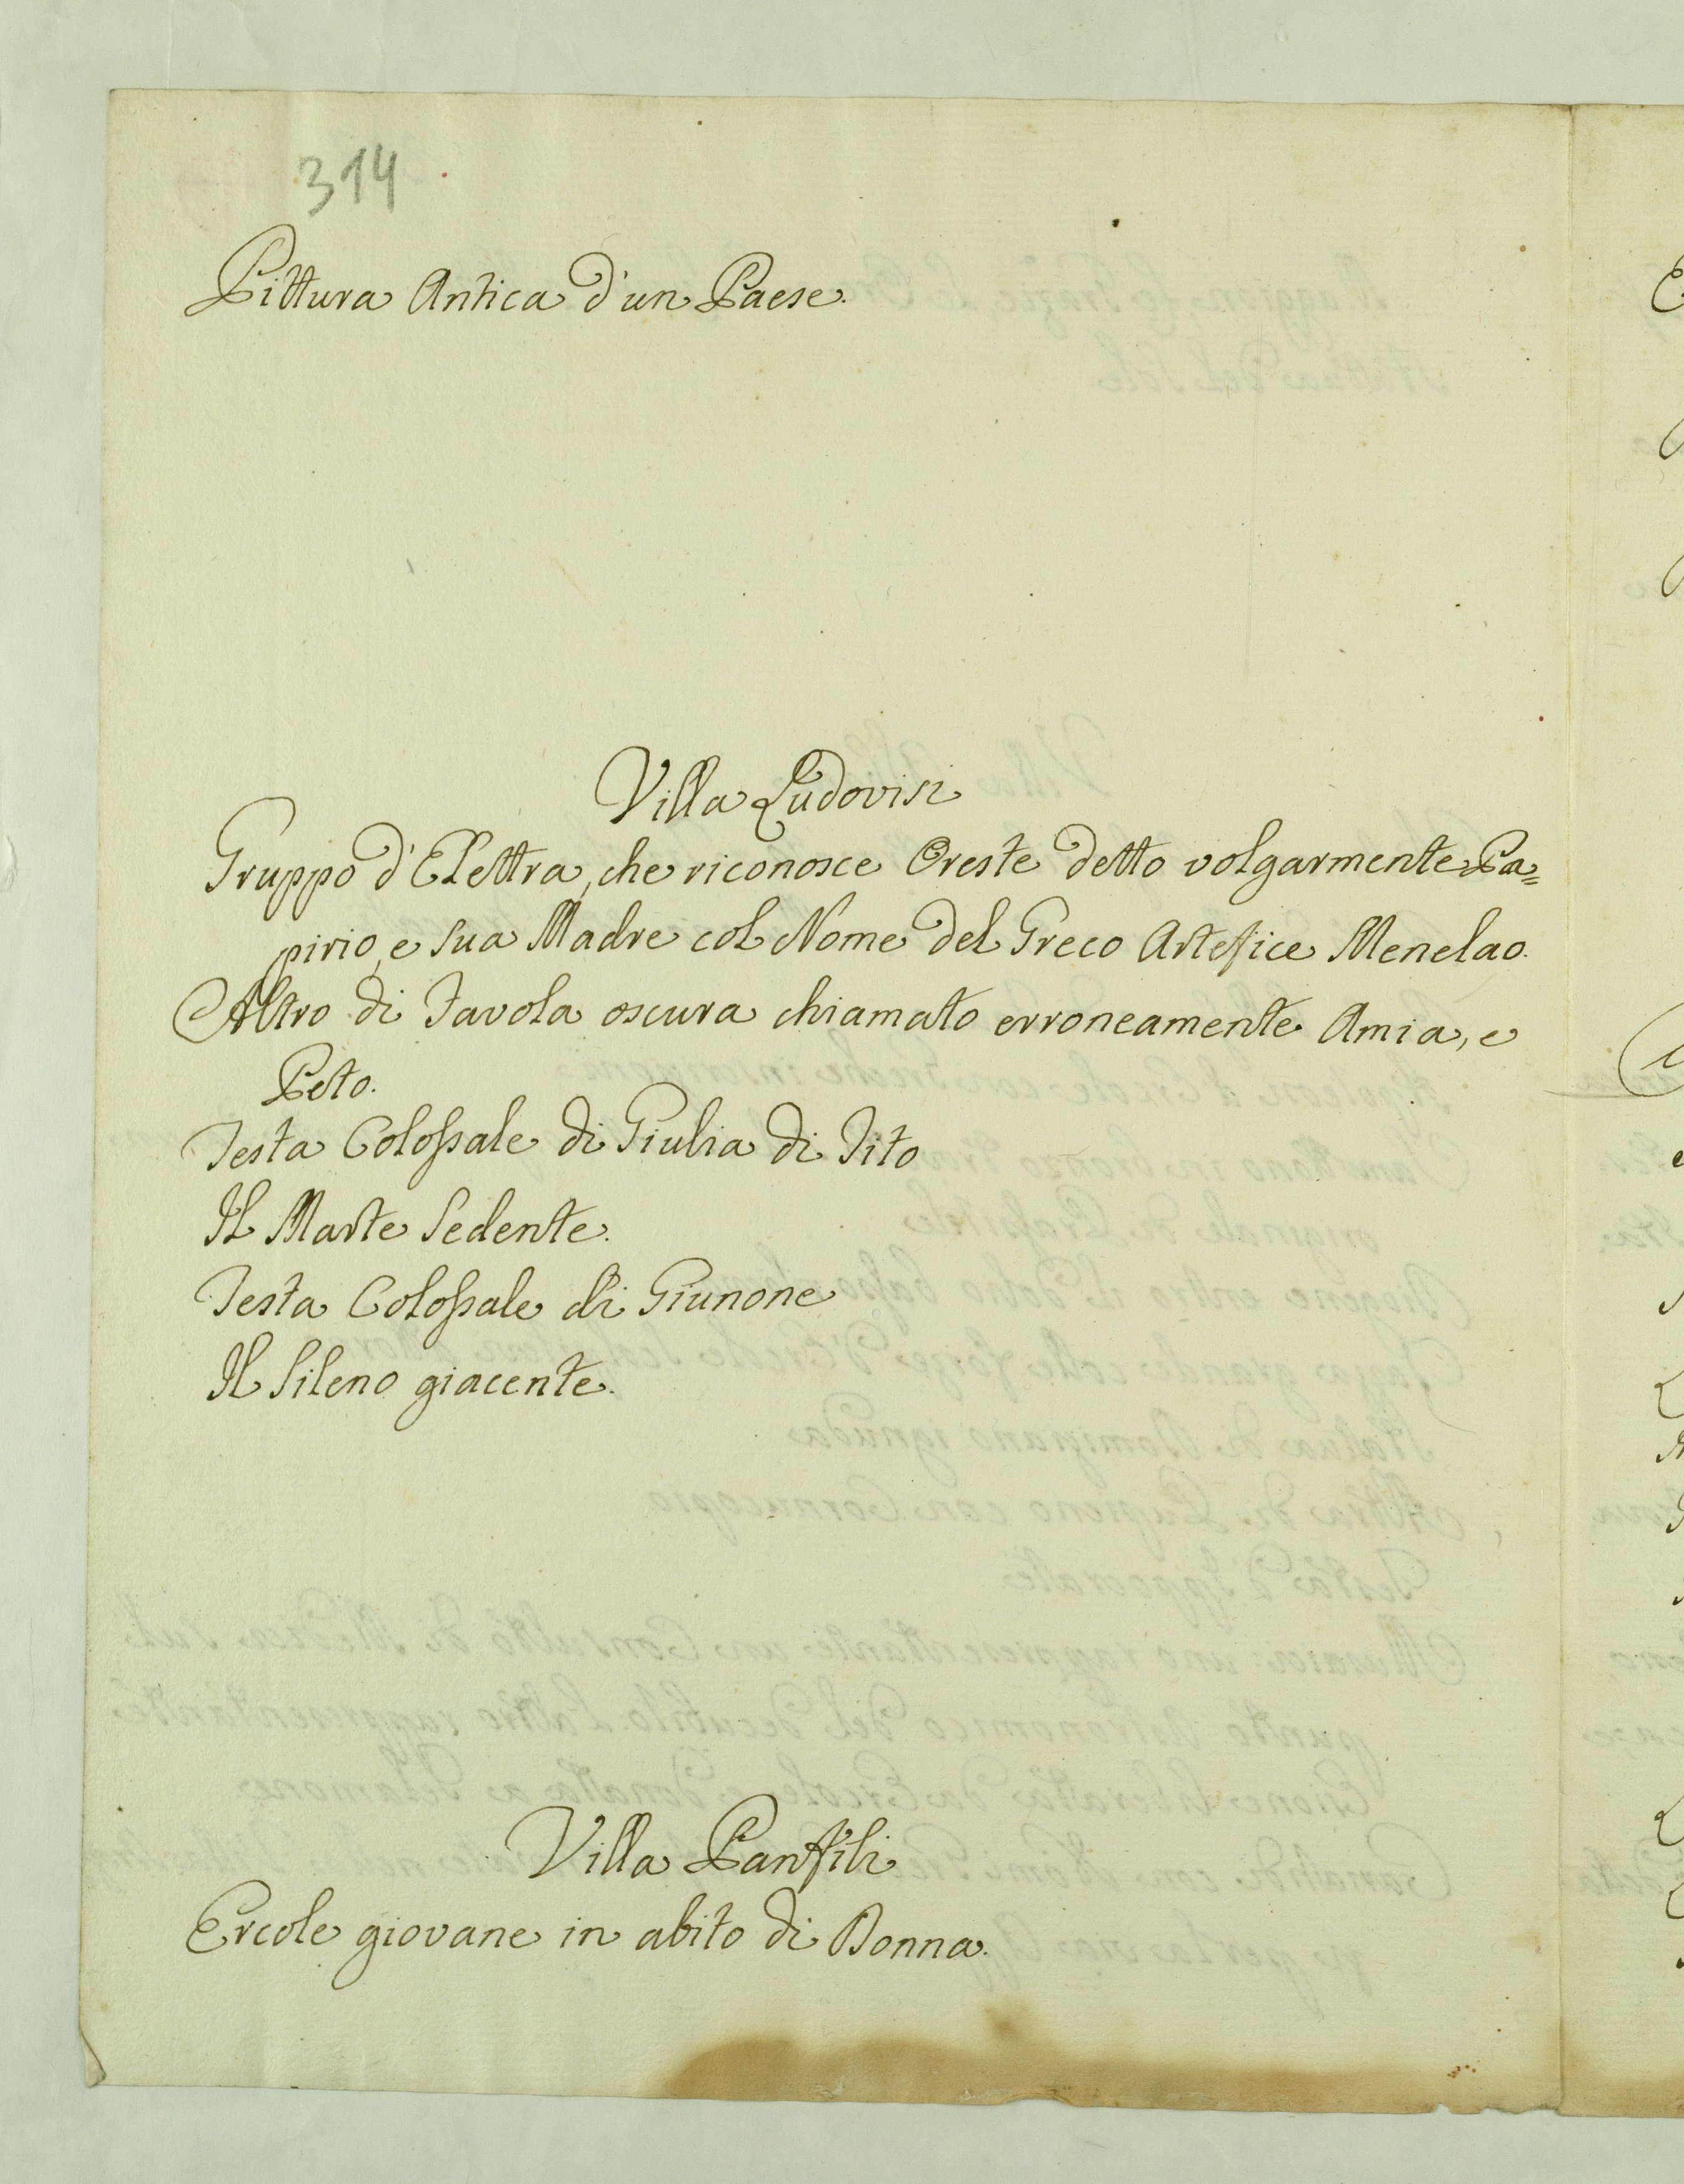 314
Pittura Antica d'un Paese.
Villa Ludovisi
Gruppo d'Elettra, che riconosce Oreste detto volgarmente Pa=
pirio, e sua Madre col Nome del Greco Artefice Menelao.
Altro di Favola oscura chiamato erroneamente Amia, e
Peto.
Testa Colossale di Giulia di Tito
Il Marte Sedente.
Testa Colossale di Giunone
Il Sileno giacente.
Villa Panfili
Ercole giovane in abito di Donna.